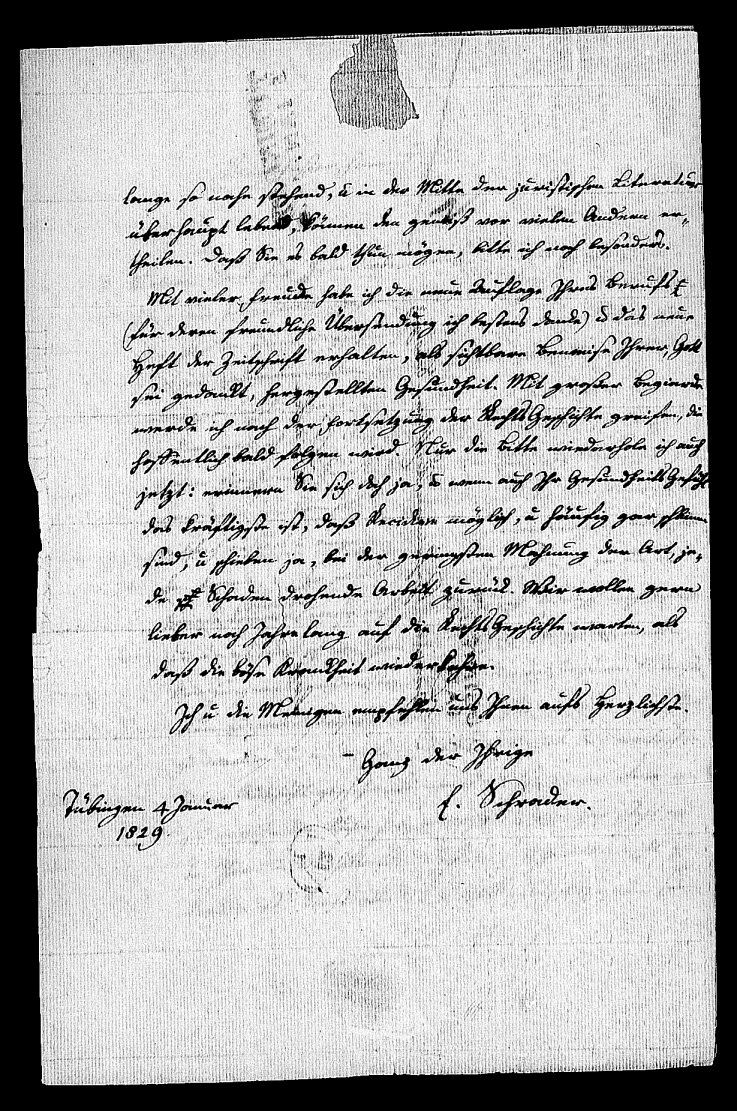 lange so nahe stehend, u in der Mitte der juristischen Literatur
überhaupt lebend, können den gewiß vor vielen Andern er-
theilen. Daß Sie es bald thun mögen, bitte ich noch besonders.
Mit vieler Freude habe ich die neue Auflage Ihres Berufs
(für deren freundliche Übersendung ich bestens danke) u das neue
Heft der Zeitschrift erhalten, als sichtbare Beweise Ihrer, Gott
sei gedankt, hergestellten Gesundheit. Mit großer Begierde
werde ich nach der Fortsetzung der RechtsGeschichte greifen, die
hoffentlich bald folgen wird. Nur die Bitte wiederhole ich auch
jetzt: erinnern Sie sich doch ja, u wenn auch Ihr GesundheitsGefühl
das kräftigste ist, daß Recidive möglich, u häufig gar schlimm
sind, u schieben ja, bei der geringsten Mahnung der Art, je-
de Schaden drohende Arbeit zurück. Wir wollen gern
lieber noch Jahre lang auf die RechtsGeschichte warten, als
daß die böse Krankheit wiederkehre.
Ich u die Meinigen empfehlen uns Ihnen aufs Herzlichste.
Ganz der Ihrige
E. Schrader.
Tübingen 4 Januar
1829.